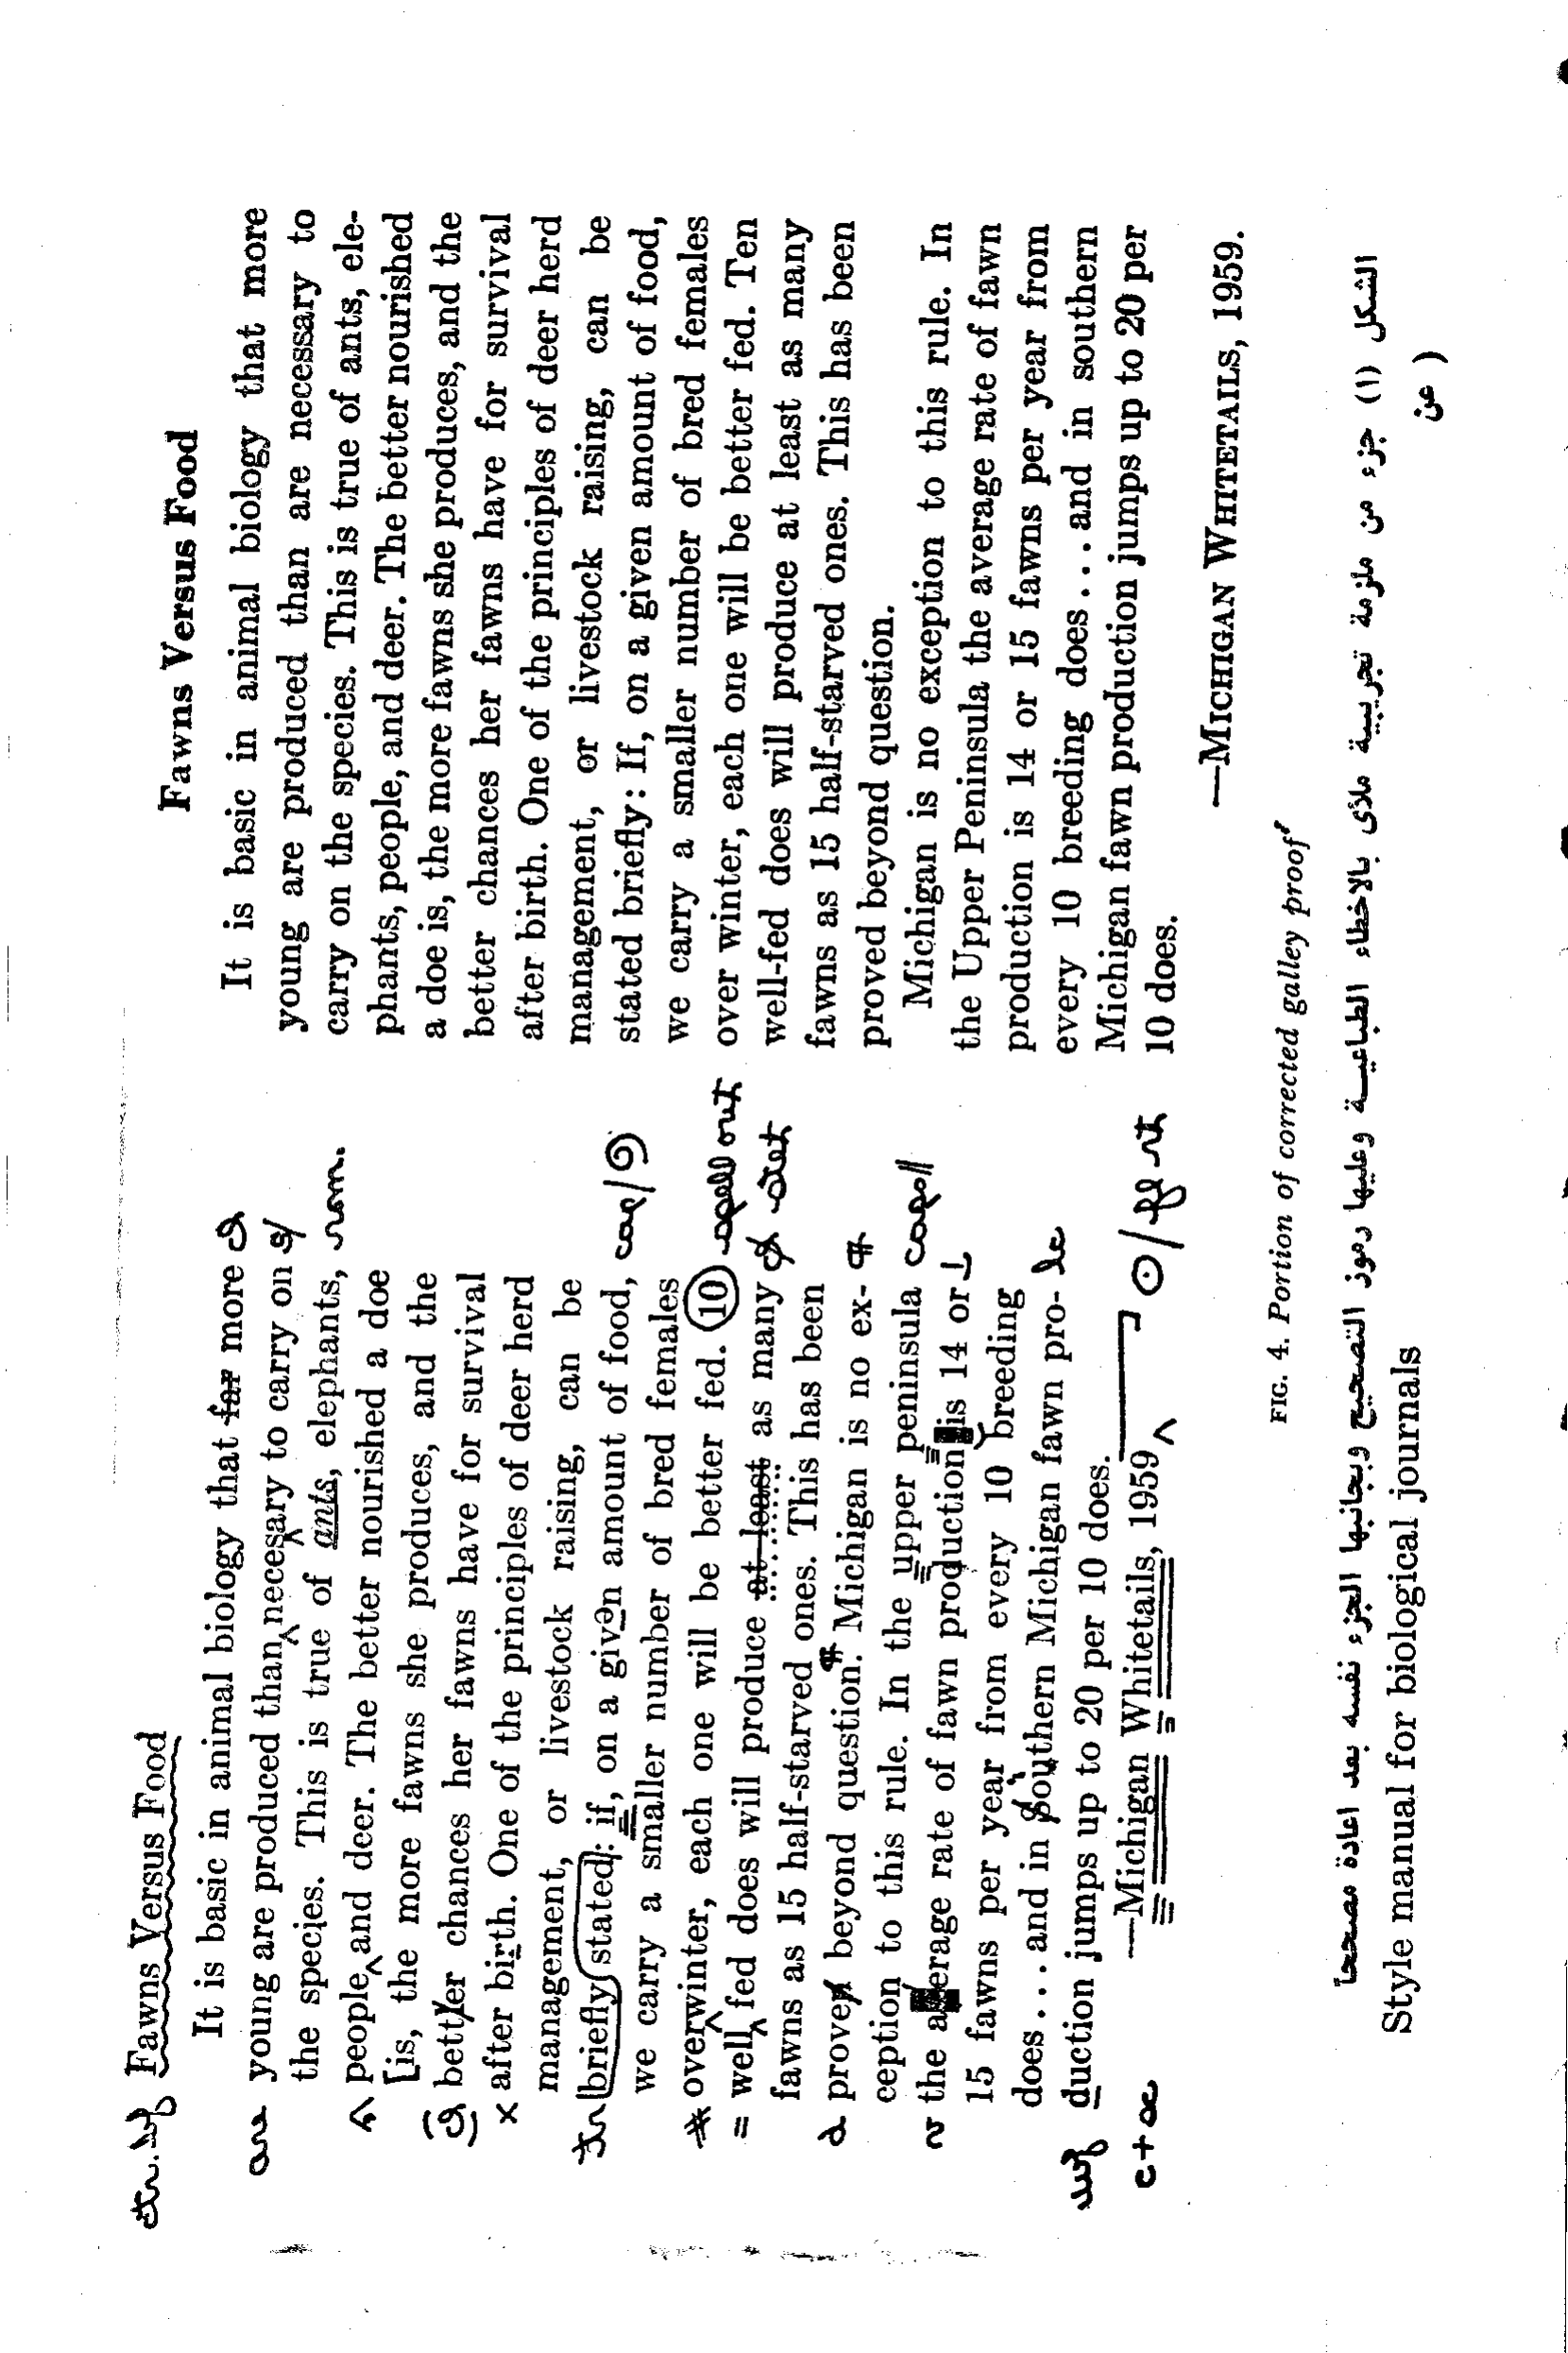 ctr. bf Fawns Versus Food
It is basic in animal biology that far more
are young are produced than necesary to carry on s/
the species. This is true of ants, elephants, rom.
people and deer. The better nourished a doe
is, the more fawns she produces, and the
bettyer chances her fawns have for survival
x after birth. One of the principles of deer herd
management, or livestock raising, can be
tr briefly stated: if, on a given amount of food, cap/
we carry a smaller number of bred females
# overwinter, each one will be better fed. 10 spell out
= well fed does will produce at least as many stet
fawns as 15 half-starved ones. This has been
d proven beyond question. Michigan is no ex- ¶
ception to this rule. In the upper peninsula caps//
the average rate of fawn production is 14 or
15 fawns per year from every 10 breeding
does...and in Southern Michigan fawn pro- lc
wf duction jumps up to 20 per 10 does.
c+sc —Michigan Whitetails, 1959 ⊙/ fl rt
Fawns Versus Food
It is basic in animal biology that more
young are produced than are necessary to
carry on the species. This is true of ants, ele-
phants, people, and deer. The better nourished
a doe is, the more fawns she produces, and the
better chances her fawns have for survival
after birth. One of the principles of deer herd
management, or livestock raising, can be
stated briefly: If, on a given amount of food,
we carry a smaller number of bred females
over winter, each one will be better fed. Ten
well-fed does will produce at least as many
fawns as 15 half-starved ones. This has been
proved beyond question.
Michigan is no exception to this rule. In
the Upper Peninsula the average rate of fawn
production is 14 or 15 fawns per year from
every 10 breeding does...and in southern
Michigan fawn production jumps up to 20 per
10 does.
—MICHIGAN WHITETAILS, 1959.
FIG. 4. Portion of corrected galley proof
الشكل (١) جزء من ملزمة تجريبية ملأى بالاخطاء الطباعيــة وعليها رموز التصحيح وبجانبها الجزء نفسه بعد اعادة مصححاً
عن )
Style manual for biological journals